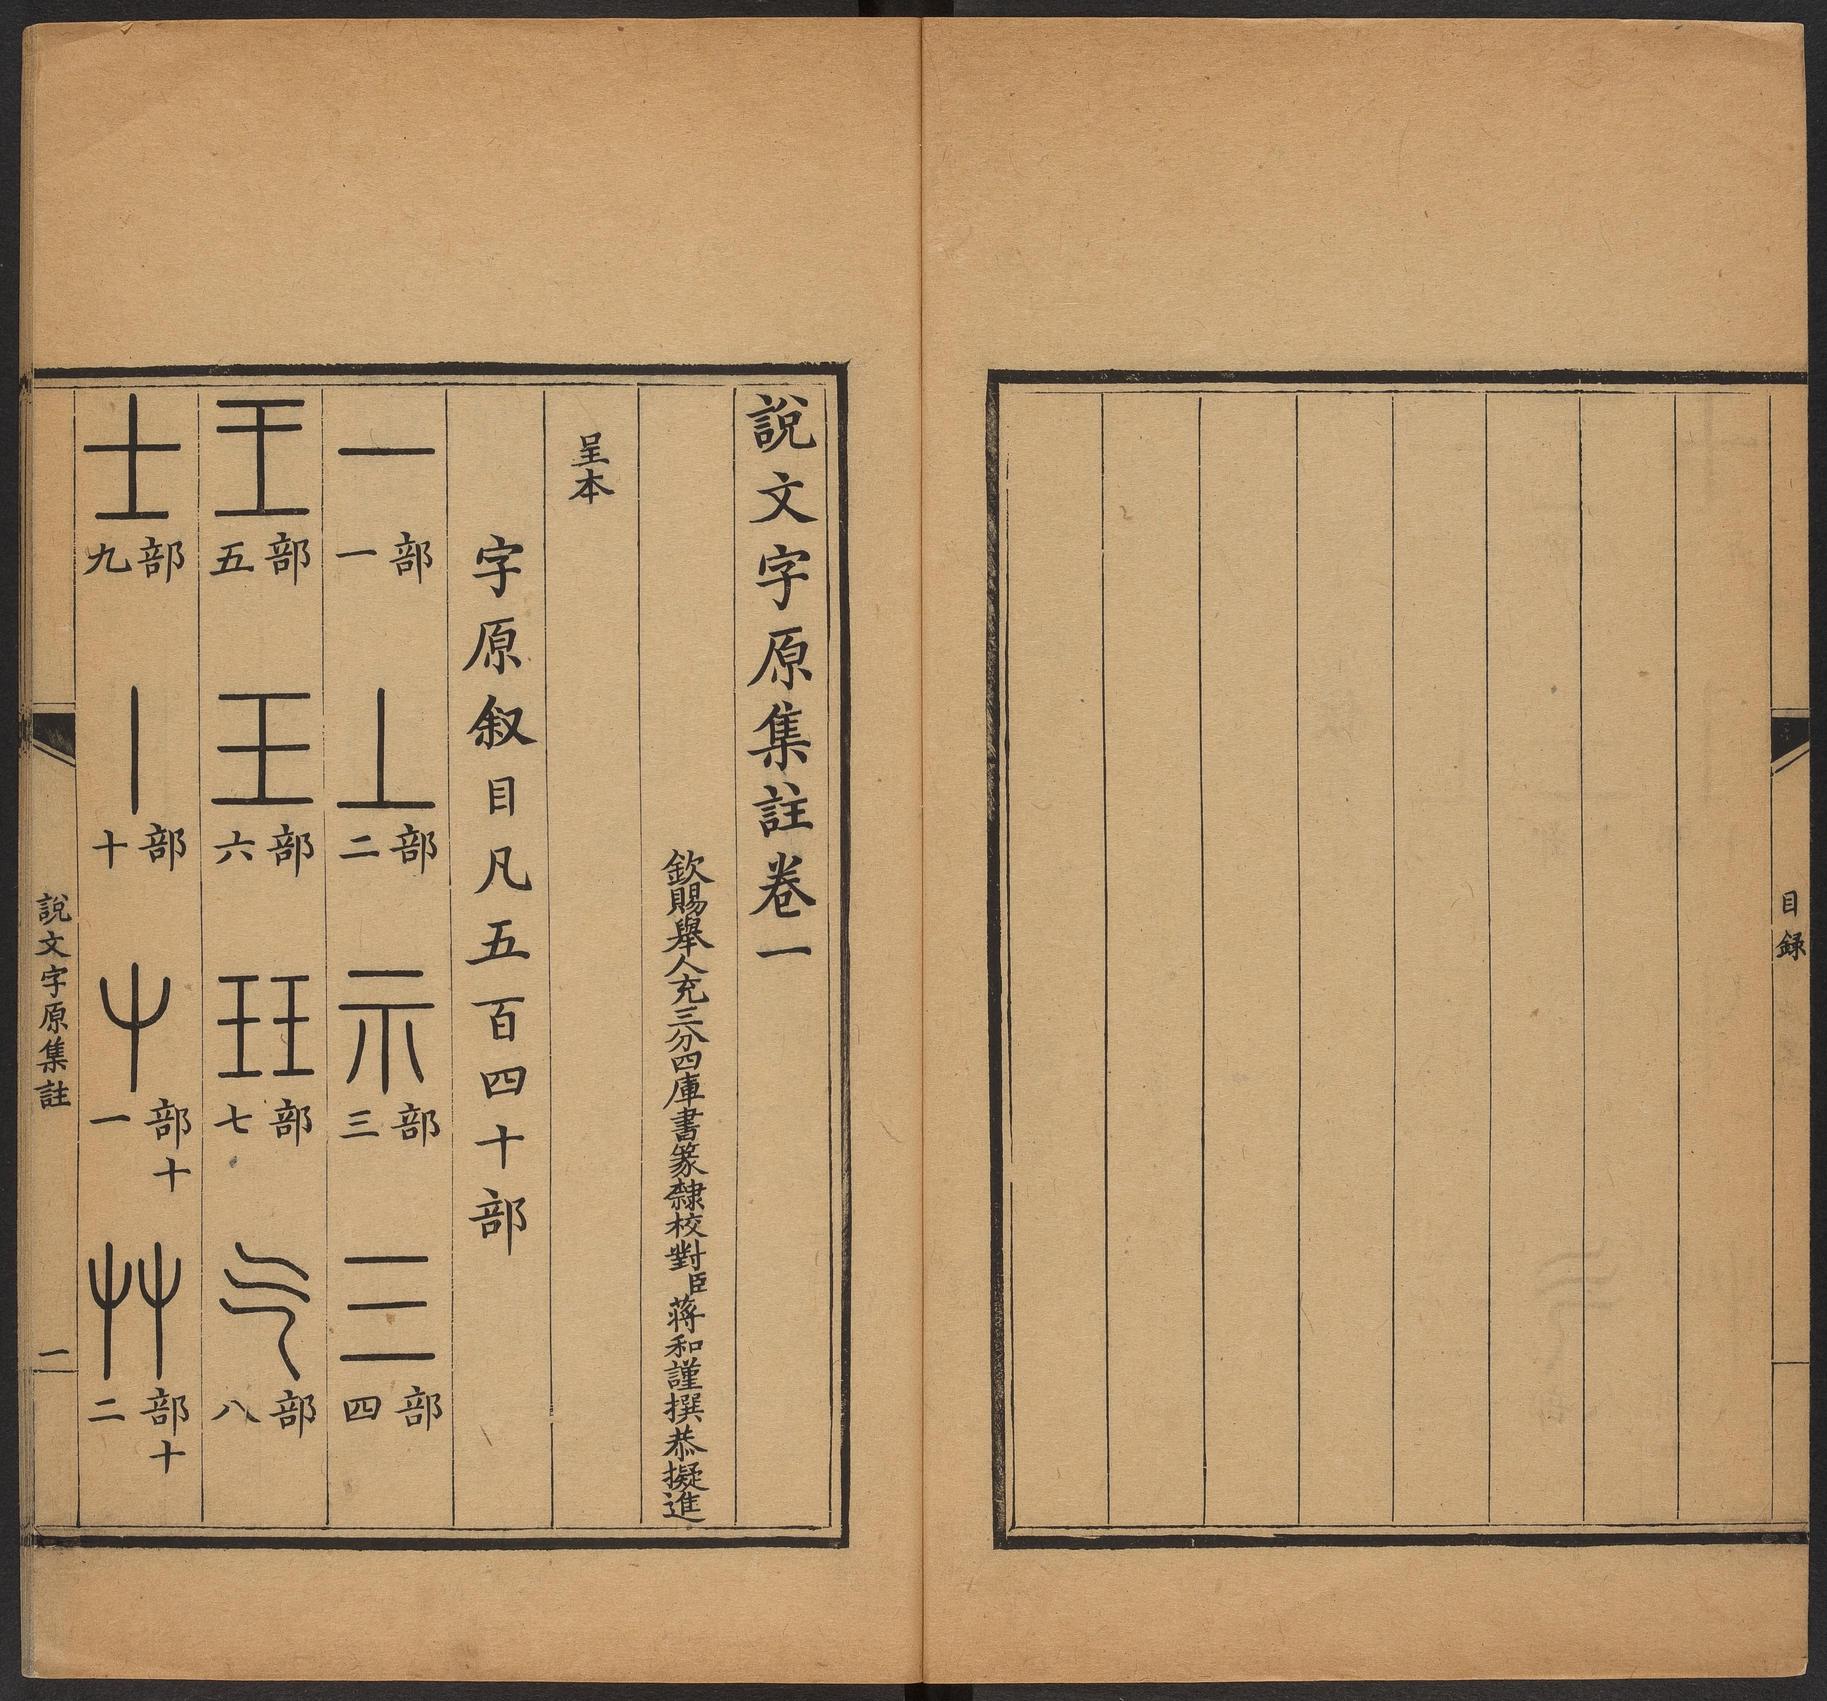 目録
說文字原集註卷一
欽賜舉人充三分四庫書篆隸校對臣蔣和謹撰恭擬進
呈本
字原叙目凡五百四十部
一 部一 丄 部二 示 部三 三 部四
王 部五 玉 部六 玨 部七 气 部八
士 部九 丨 部十 屮 部十一 艸 部十二
說文字原集註
一